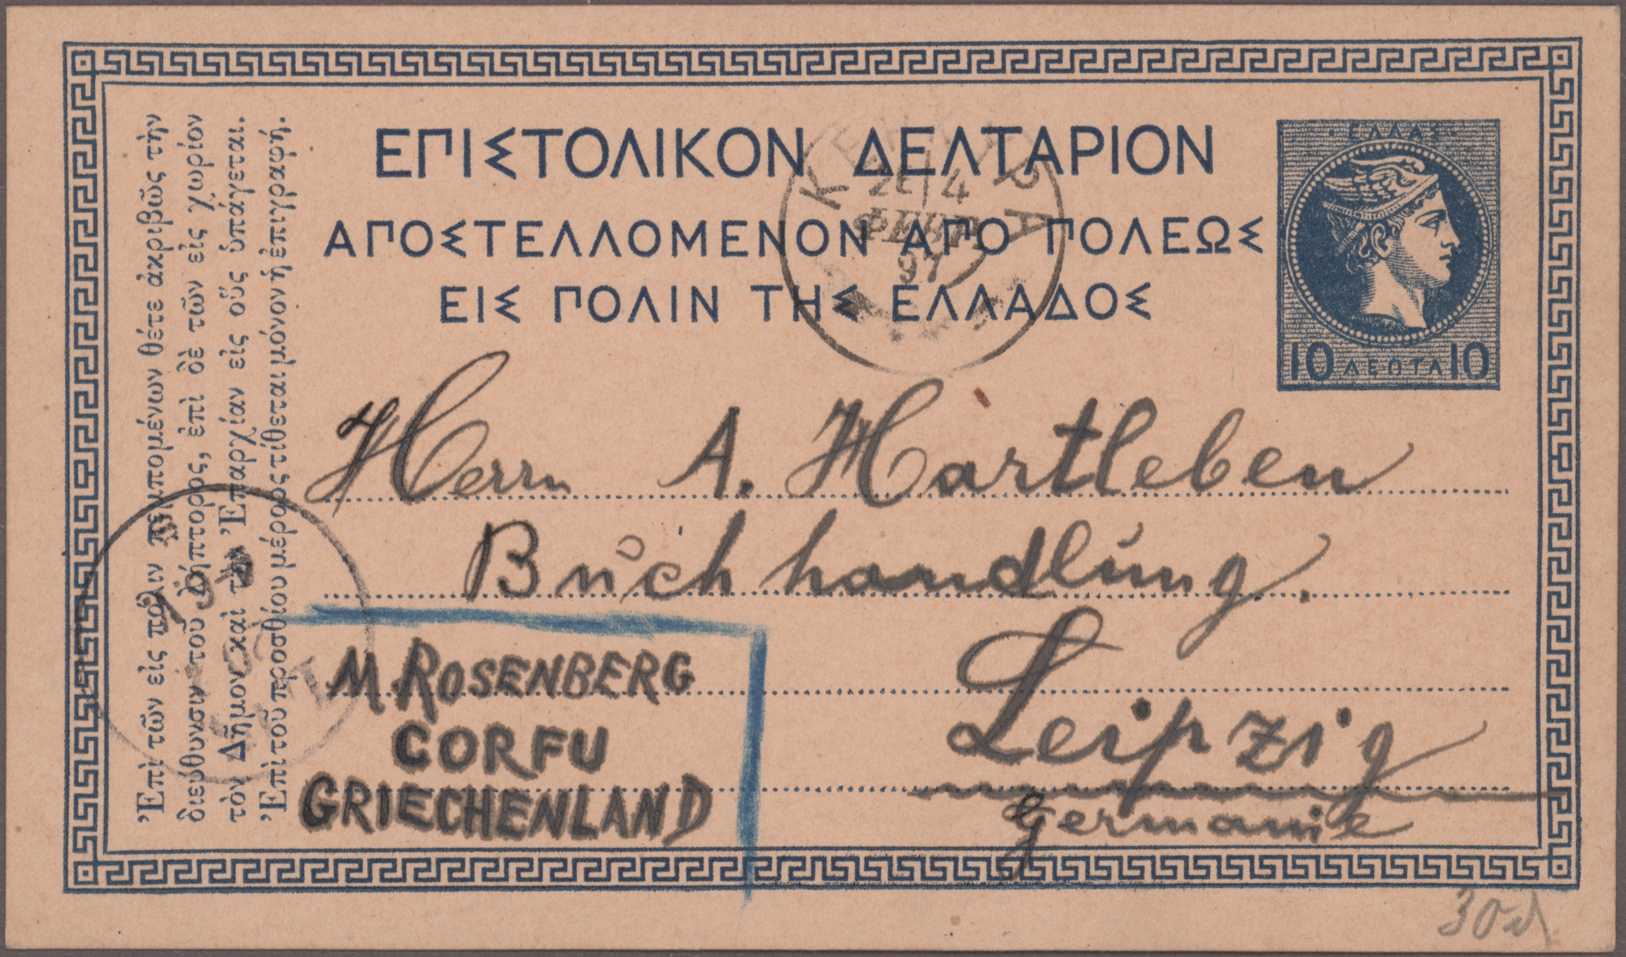 ΕΠΙΣΤΟΛΙΚΟΝ ΔΕΛΤΑΡΙΟΝ
ΑΠΟΣΤΕΛΛΟΜΕΝΟΝ ΑΠΟ ΠΟΛΕΩΣ
ΕΙΣ ΠΟΛΙΝ ΤΗΣ ΕΛΛΑΔΟΣ
ΕΛΛΑΣ
10 ΛΕΠΤΑ 10
ΚΕΡΚΥΡΑ
4
ΦΕΒΡ
Ἐπὶ τῶν εἰς πόλιν πεμπομένων θέτε ἀκριβῶς τὴν
διεύθυνσιν τοῦ λήπτορος, ἐπὶ δὲ τῶν εἰς χωρίον
τὸν Δῆμον καὶ τὴν Ἐπαρχίαν εἰς οὓς ὑπάγεται.
Ἐπὶ τοῦ προσθίου μέρος τίθεται μόνον ἡ ἐπιγραφή.
Herrn A. Hartleben
Buchhandlung.
Leipzig
Germanie
M. ROSENBERG
CORFU
GRIECHENLAND